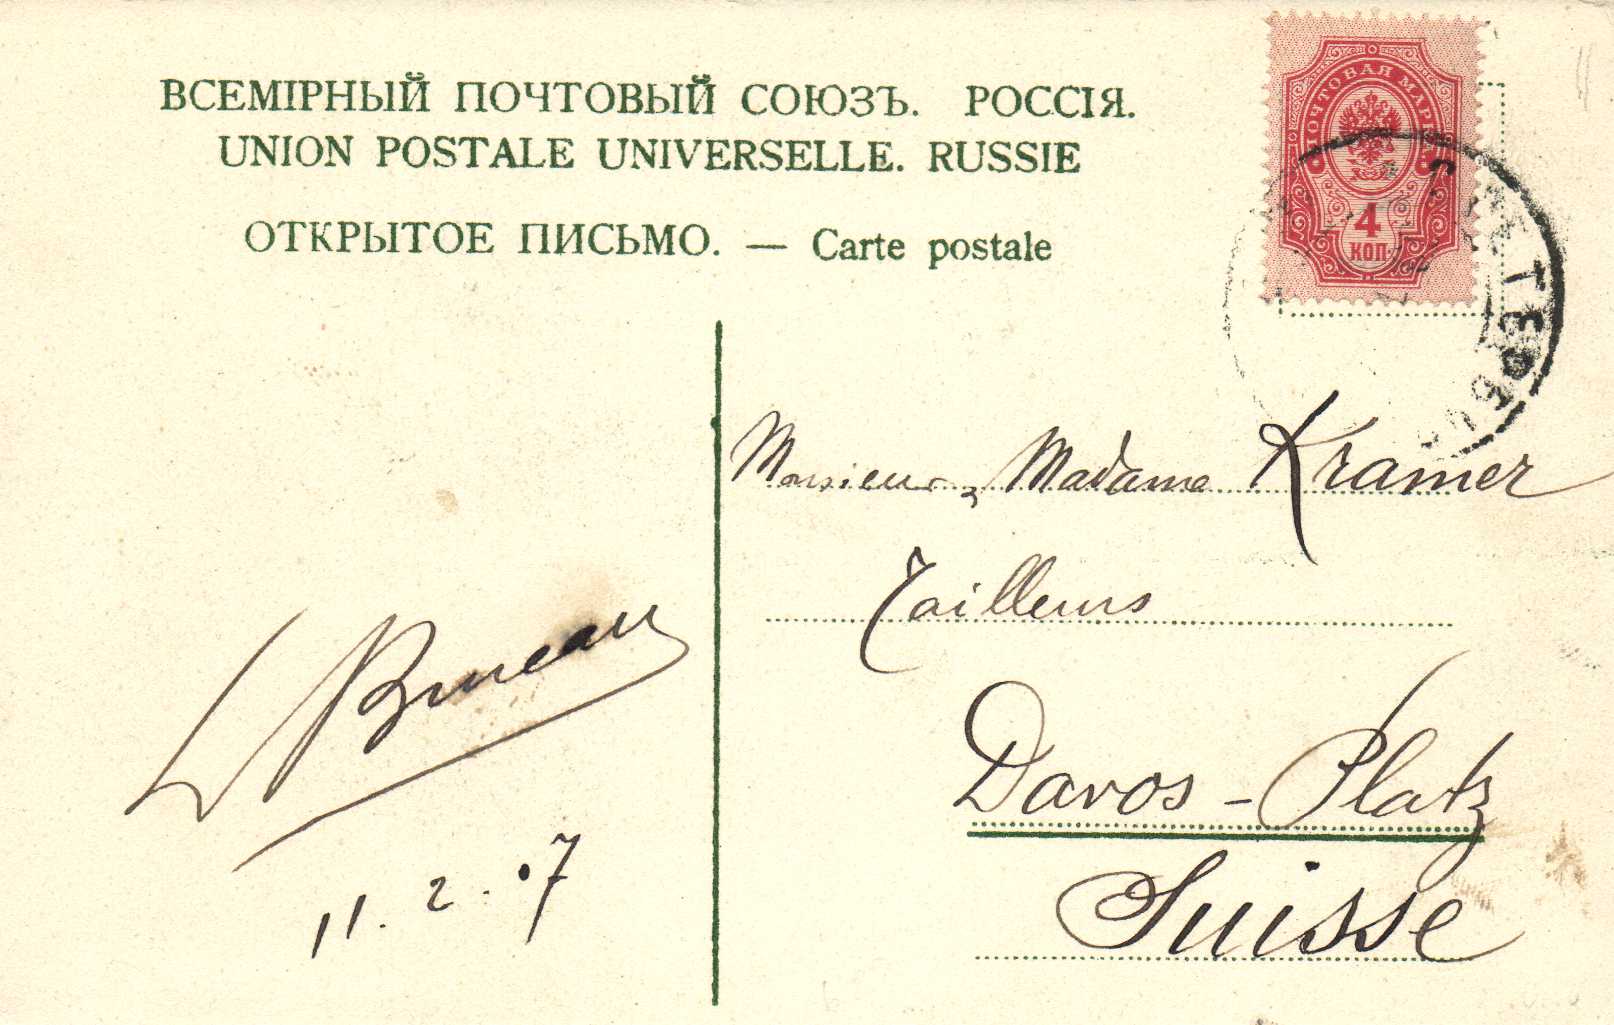 ВСЕМІРНЫЙ ПОЧТОВЫЙ СОЮЗЪ. РОССІЯ.
UNION POSTALE UNIVERSELLE. RUSSIE
ОТКРЫТОЕ ПИСЬМО. — Carte postale
ПОЧТОВАЯ МАРКА
4
КОП.
Monsieur, Madame Kramer
Tailleurs
Davos-Platz
Suisse
11.2.07